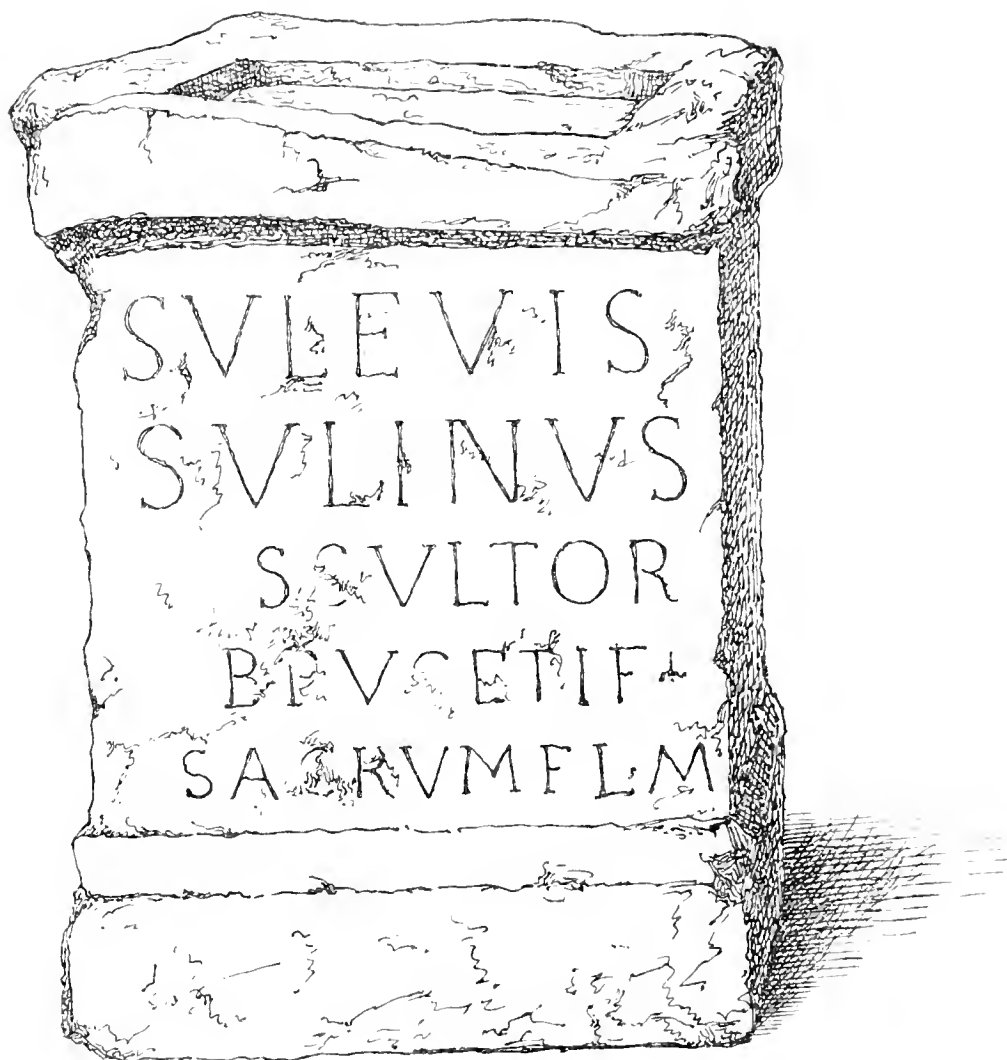 SVLEVIS
SVLINVS
SCVLTOR
BRVCETIF
SACRVMFLM